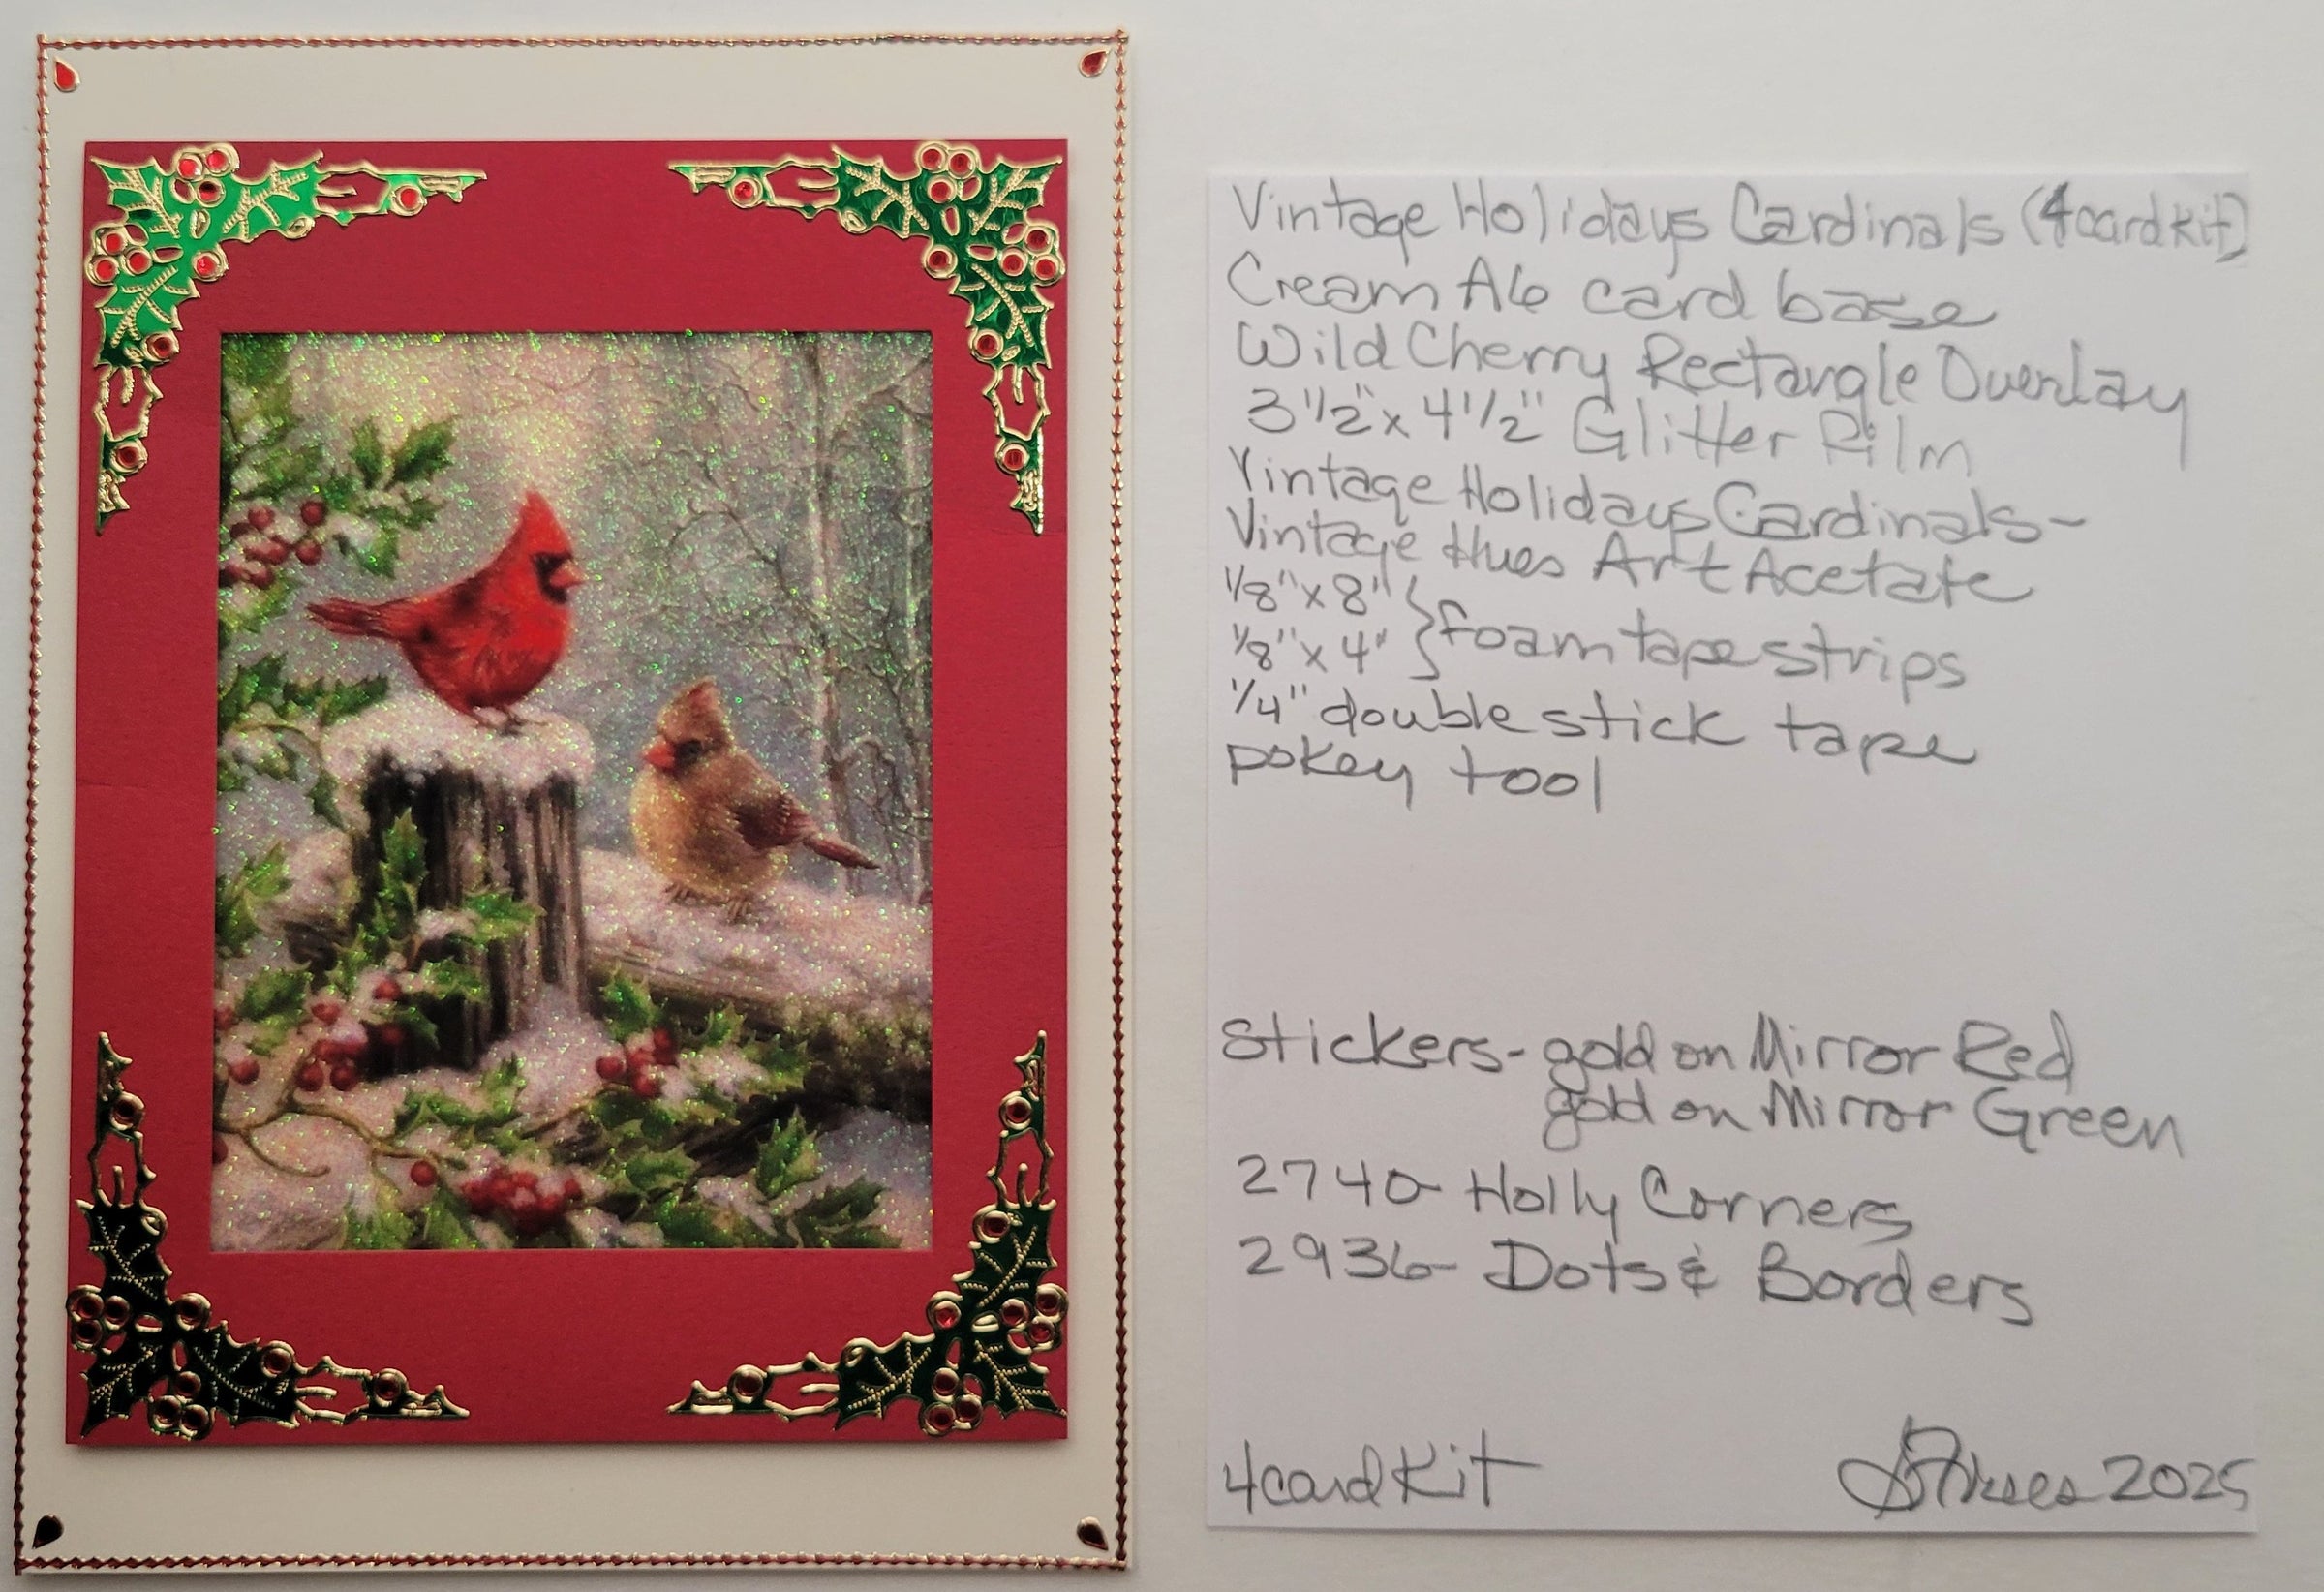 Vintage Holidays Cardinals (4 card kit)
Cream A6 card base
Wild Cherry Rectangle Overlay
3 1/2" x 4 1/2" Glitter Film
Vintage Holidays Cardinals-
Vintage Hues Art Acetate
1/8" x 8" } foam tape strips
1/8" x 4"
1/4" double stick tape
pokey tool
Stickers- gold on Mirror Red
gold on Mirror Green
2740- Holly Corners
2936- Dots & Borders
4 card Kit
2025